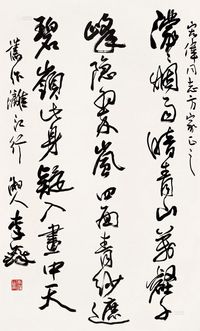 宏伟同志方家正之
濛濛烟雨晴青山万壑千
峰隐翠岚四面青纱遮
碧岭此身疑入画中天
旧作漓江行 湘人李铎